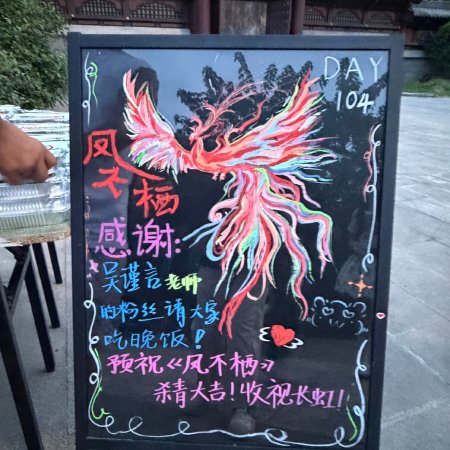 DAY
104
凤不栖
感谢:
吴谨言老师
的粉丝请大家
吃晚饭!
预祝《凤不栖》
杀青大吉!收视长虹!